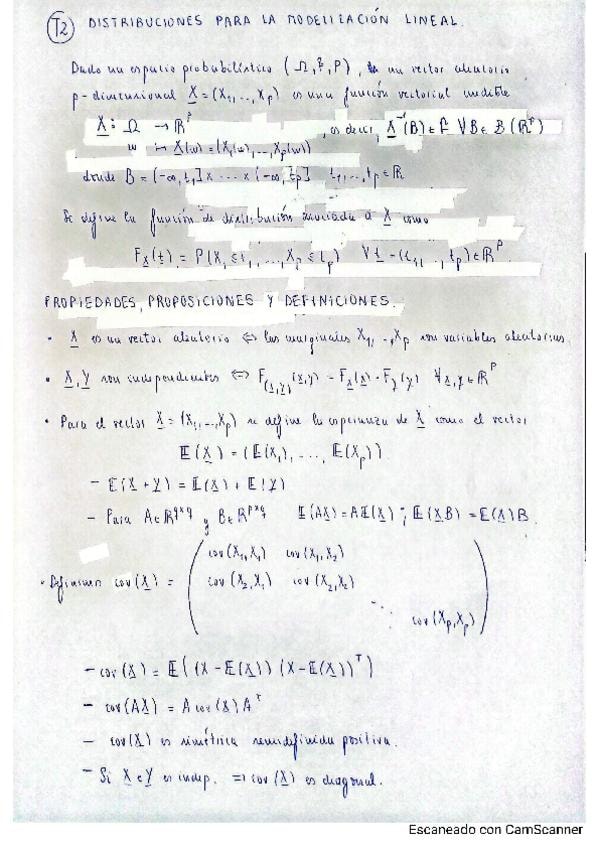 T2 DISTRIBUCIONES PARA LA MODELIZACIÓN LINEAL.
Dado un espacio probabilístico (Ω, F, P), un vector aleatorio
p-dimensional X = (X₁, ..., Xp) es una función vectorial medible
X: Ω → ℝᵖ , es decir, X⁻¹(B) ∈ F ∀B ∈ B(ℝᵖ)
w ↦ X(w) = (X₁(w), ..., Xp(w))
donde B = (-∞, t₁] x ... x (-∞, tp] t₁, ..., tp ∈ ℝ
Se define la función de distribución asociada a X como
F_X(t) = P(X₁ ≤ t₁, ..., Xp ≤ tp) ∀ t = (t₁, ..., tp) ∈ ℝᵖ
PROPIEDADES, PROPOSICIONES Y DEFINICIONES.
• X es un vector aleatorio ⇔ las marginales X₁, ..., Xp son variables aleatorias.
• X, Y son independientes ⇔ F_(X,Y)(x,y) = F_X(x) · F_Y(y) ∀x, y ∈ ℝᵖ
• Para el vector X = (X₁, ..., Xp) se define la esperanza de X como el vector
E(X) = (E(X₁), ..., E(Xp)).
- E(X + Y) = E(X) + E(Y)
- Para A ∈ ℝ^(q×q) y B ∈ ℝ^(p×q) E(AX) = A E(X) ; E(XB) = E(X)B.
cov(X₁, X₁) cov(X₁, X₂)
• Definimos cov(X) = cov(X₂, X₁) cov(X₂, X₂)
⋱ cov(Xp, Xp)
- cov(X) = E((X - E(X)) (X - E(X))ᵀ)
- cov(AX) = A cov(X) Aᵀ
- cov(X) es simétrica semidefinida positiva.
- Si X e Y es indep. ⇒ cov(X) es diagonal.
Escaneado con CamScanner